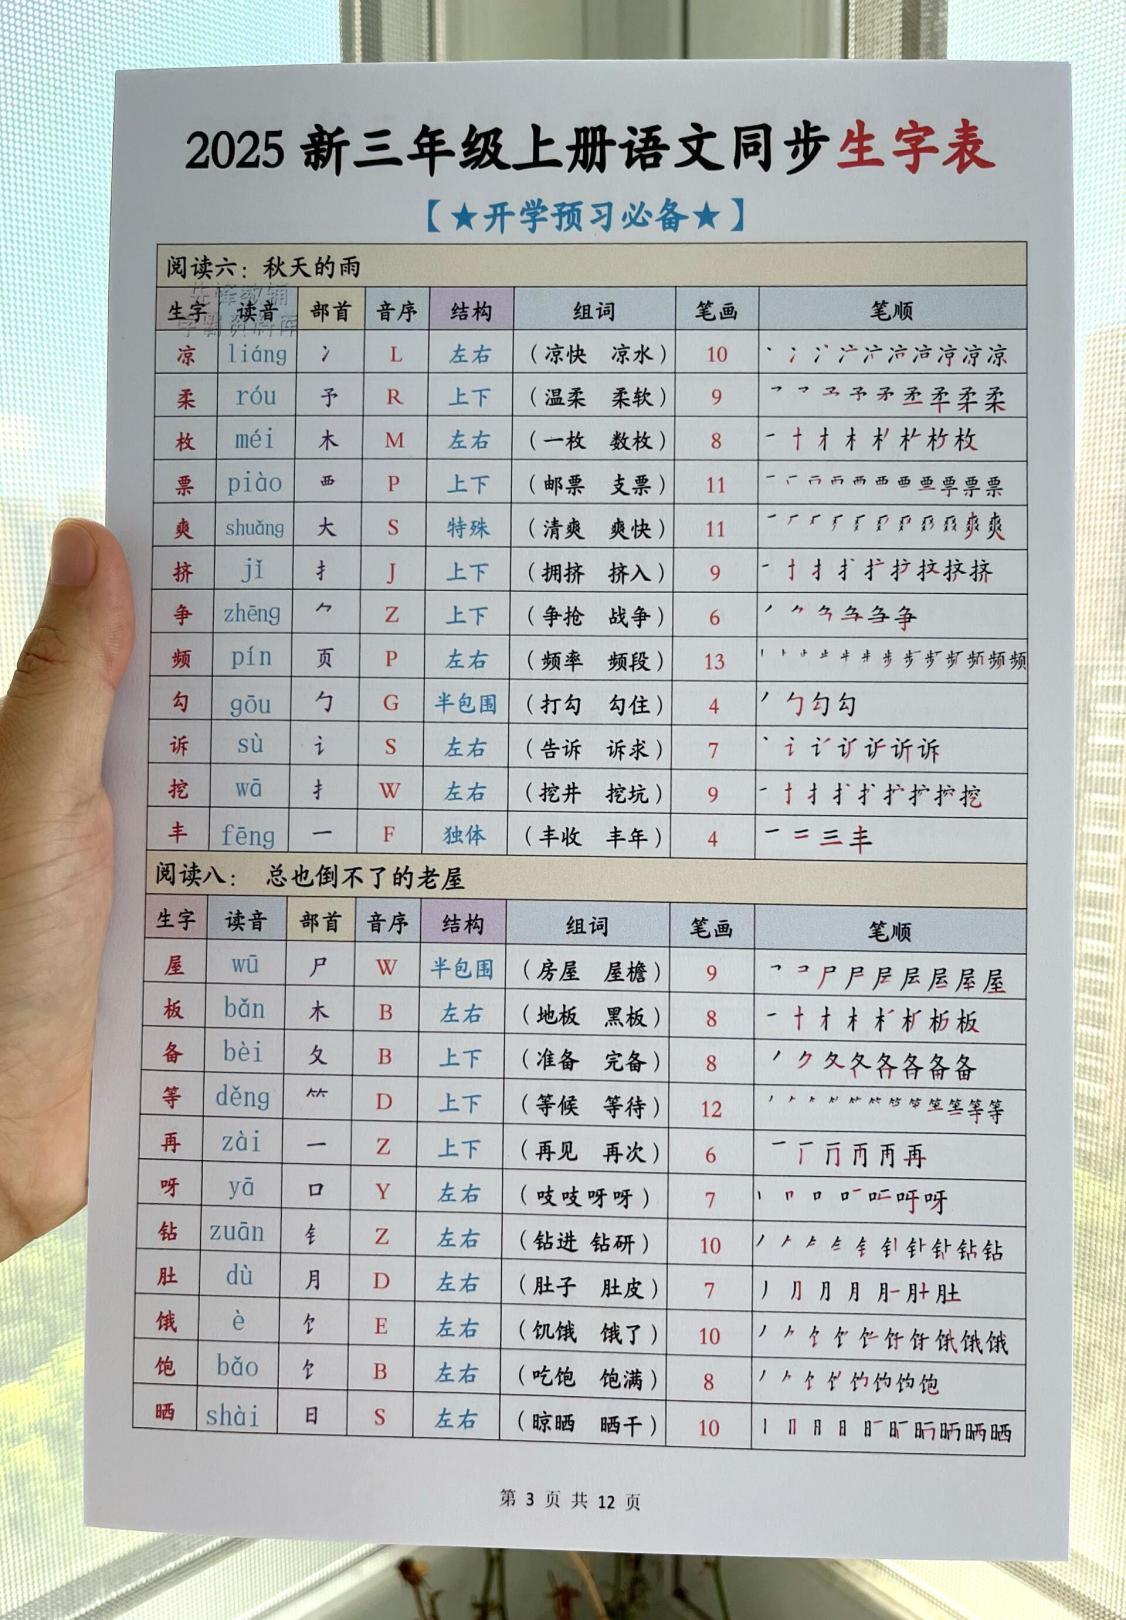 2025新三年级上册语文同步生字表
【★开学预习必备★】
阅读六：秋天的雨
生字 读音 部首 音序 结构 组词 笔画 笔顺
凉 liáng 冫 L 左右 （凉快 凉水） 10
柔 róu 予 R 上下 （温柔 柔软） 9
枚 méi 木 M 左右 （一枚 数枚） 8
票 piào 覀 P 上下 （邮票 支票） 11
爽 shuǎng 大 S 特殊 （清爽 爽快） 11
挤 jǐ 扌 J 上下 （拥挤 挤入） 9
争 zhēng ⺈ Z 上下 （争抢 战争） 6
频 pín 页 P 左右 （频率 频段） 13
勾 gōu 勹 G 半包围 （打勾 勾住） 4
诉 sù 讠 S 左右 （告诉 诉求） 7
挖 wā 扌 W 左右 （挖井 挖坑） 9
丰 fēng 一 F 独体 （丰收 丰年） 4 一 二 三 丰
阅读八： 总也倒不了的老屋
生字 读音 部首 音序 结构 组词 笔画 笔顺
屋 wū 尸 W 半包围 （房屋 屋檐） 9
板 bǎn 木 B 左右 （地板 黑板） 8
备 bèi 夂 B 上下 （准备 完备） 8
等 děng ⺮ D 上下 （等候 等待） 12
再 zài 一 Z 上下 （再见 再次） 6
呀 yā 口 Y 左右 （吱吱呀呀） 7
钻 zuān 钅 Z 左右 （钻进 钻研） 10
肚 dù 月 D 左右 （肚子 肚皮） 7
饿 è 饣 E 左右 （饥饿 饿了） 10
饱 bǎo 饣 B 左右 （吃饱 饱满） 8
晒 shài 日 S 左右 （晾晒 晒干） 10
第 3 页 共 12 页